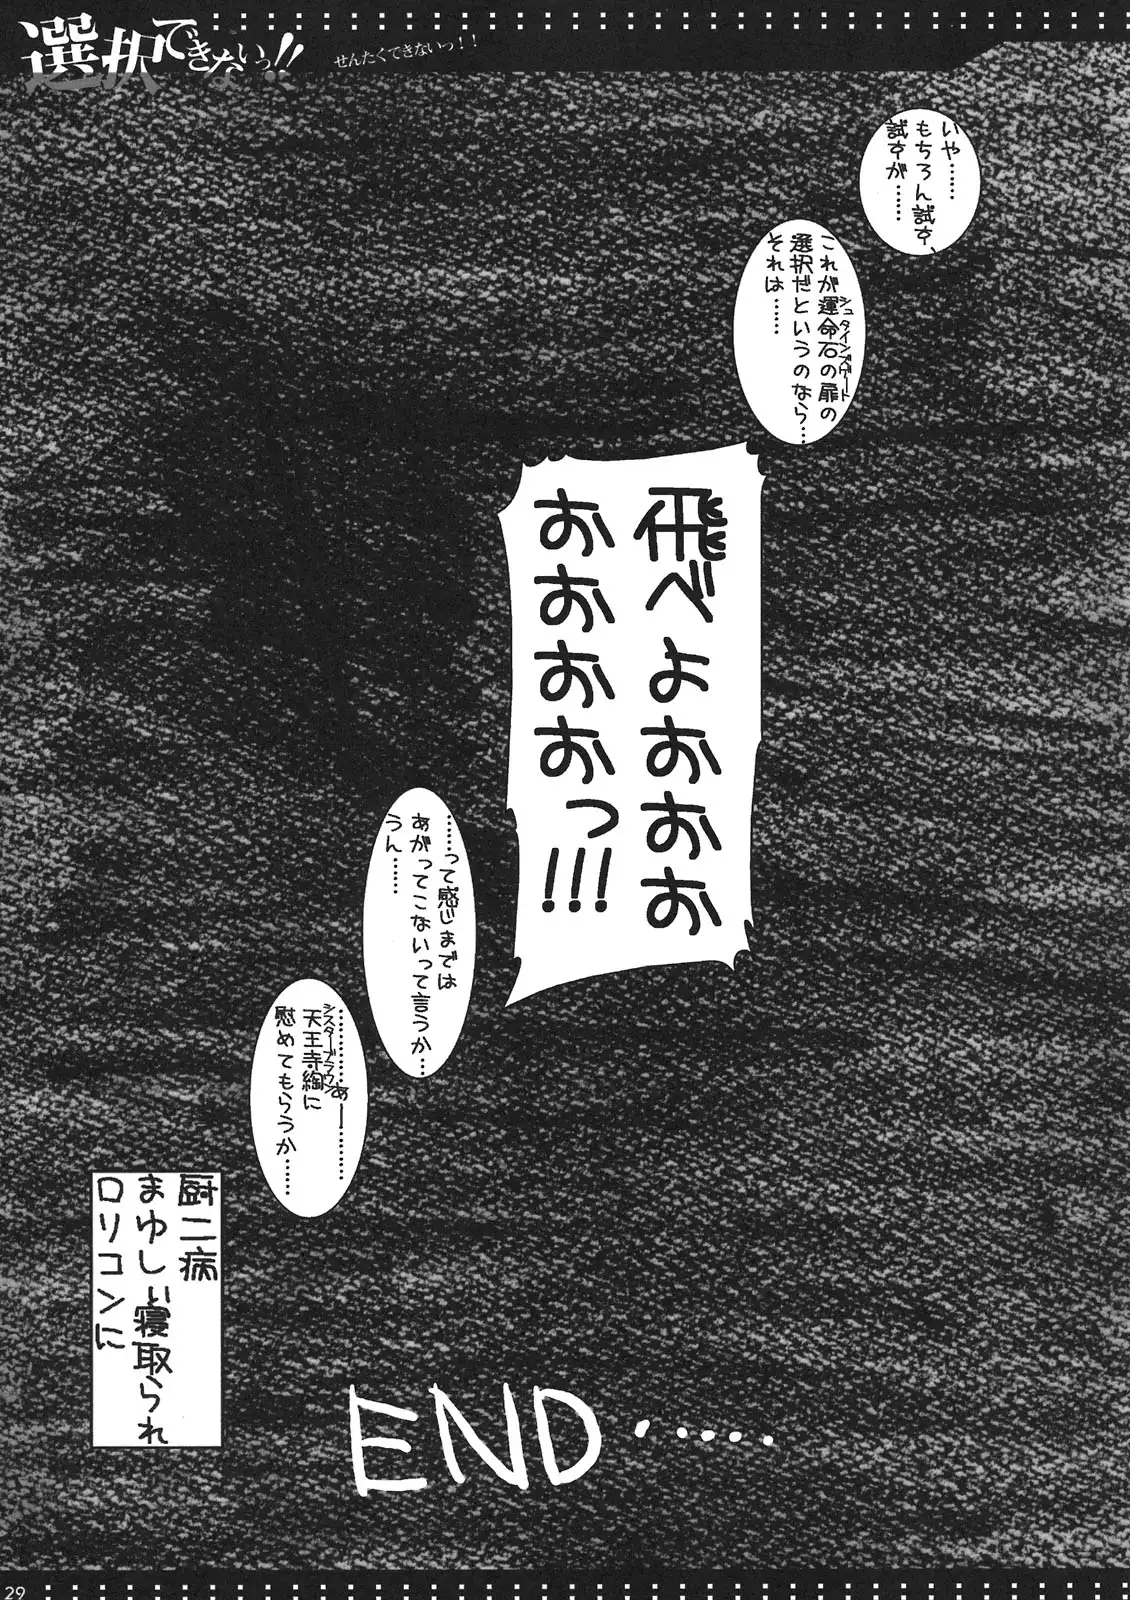 選択できないっ!!
せんたくできないっ!!
いや……
もちろん試す、
試すが……
これが運命石の扉の
シュタインズゲート
選択だというのなら…
それは……
飛べよおおお
おおおおっ!!!
……って感じまでは
あがってこないって言うか…
うん……
…………あー…………
天王寺綯に
シスターブラウン
慰めてもらうか……
厨二病
まゆしぃ寝取られ
ロリコンに
END・・・・・・
29